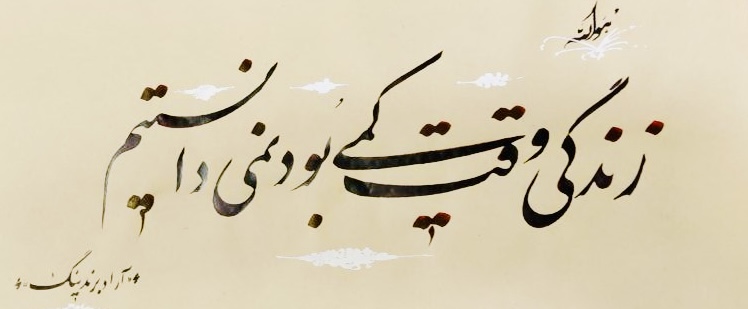 هوالله
زندگی وقت کمی بود نمی دانستیم
آراد برندینگ